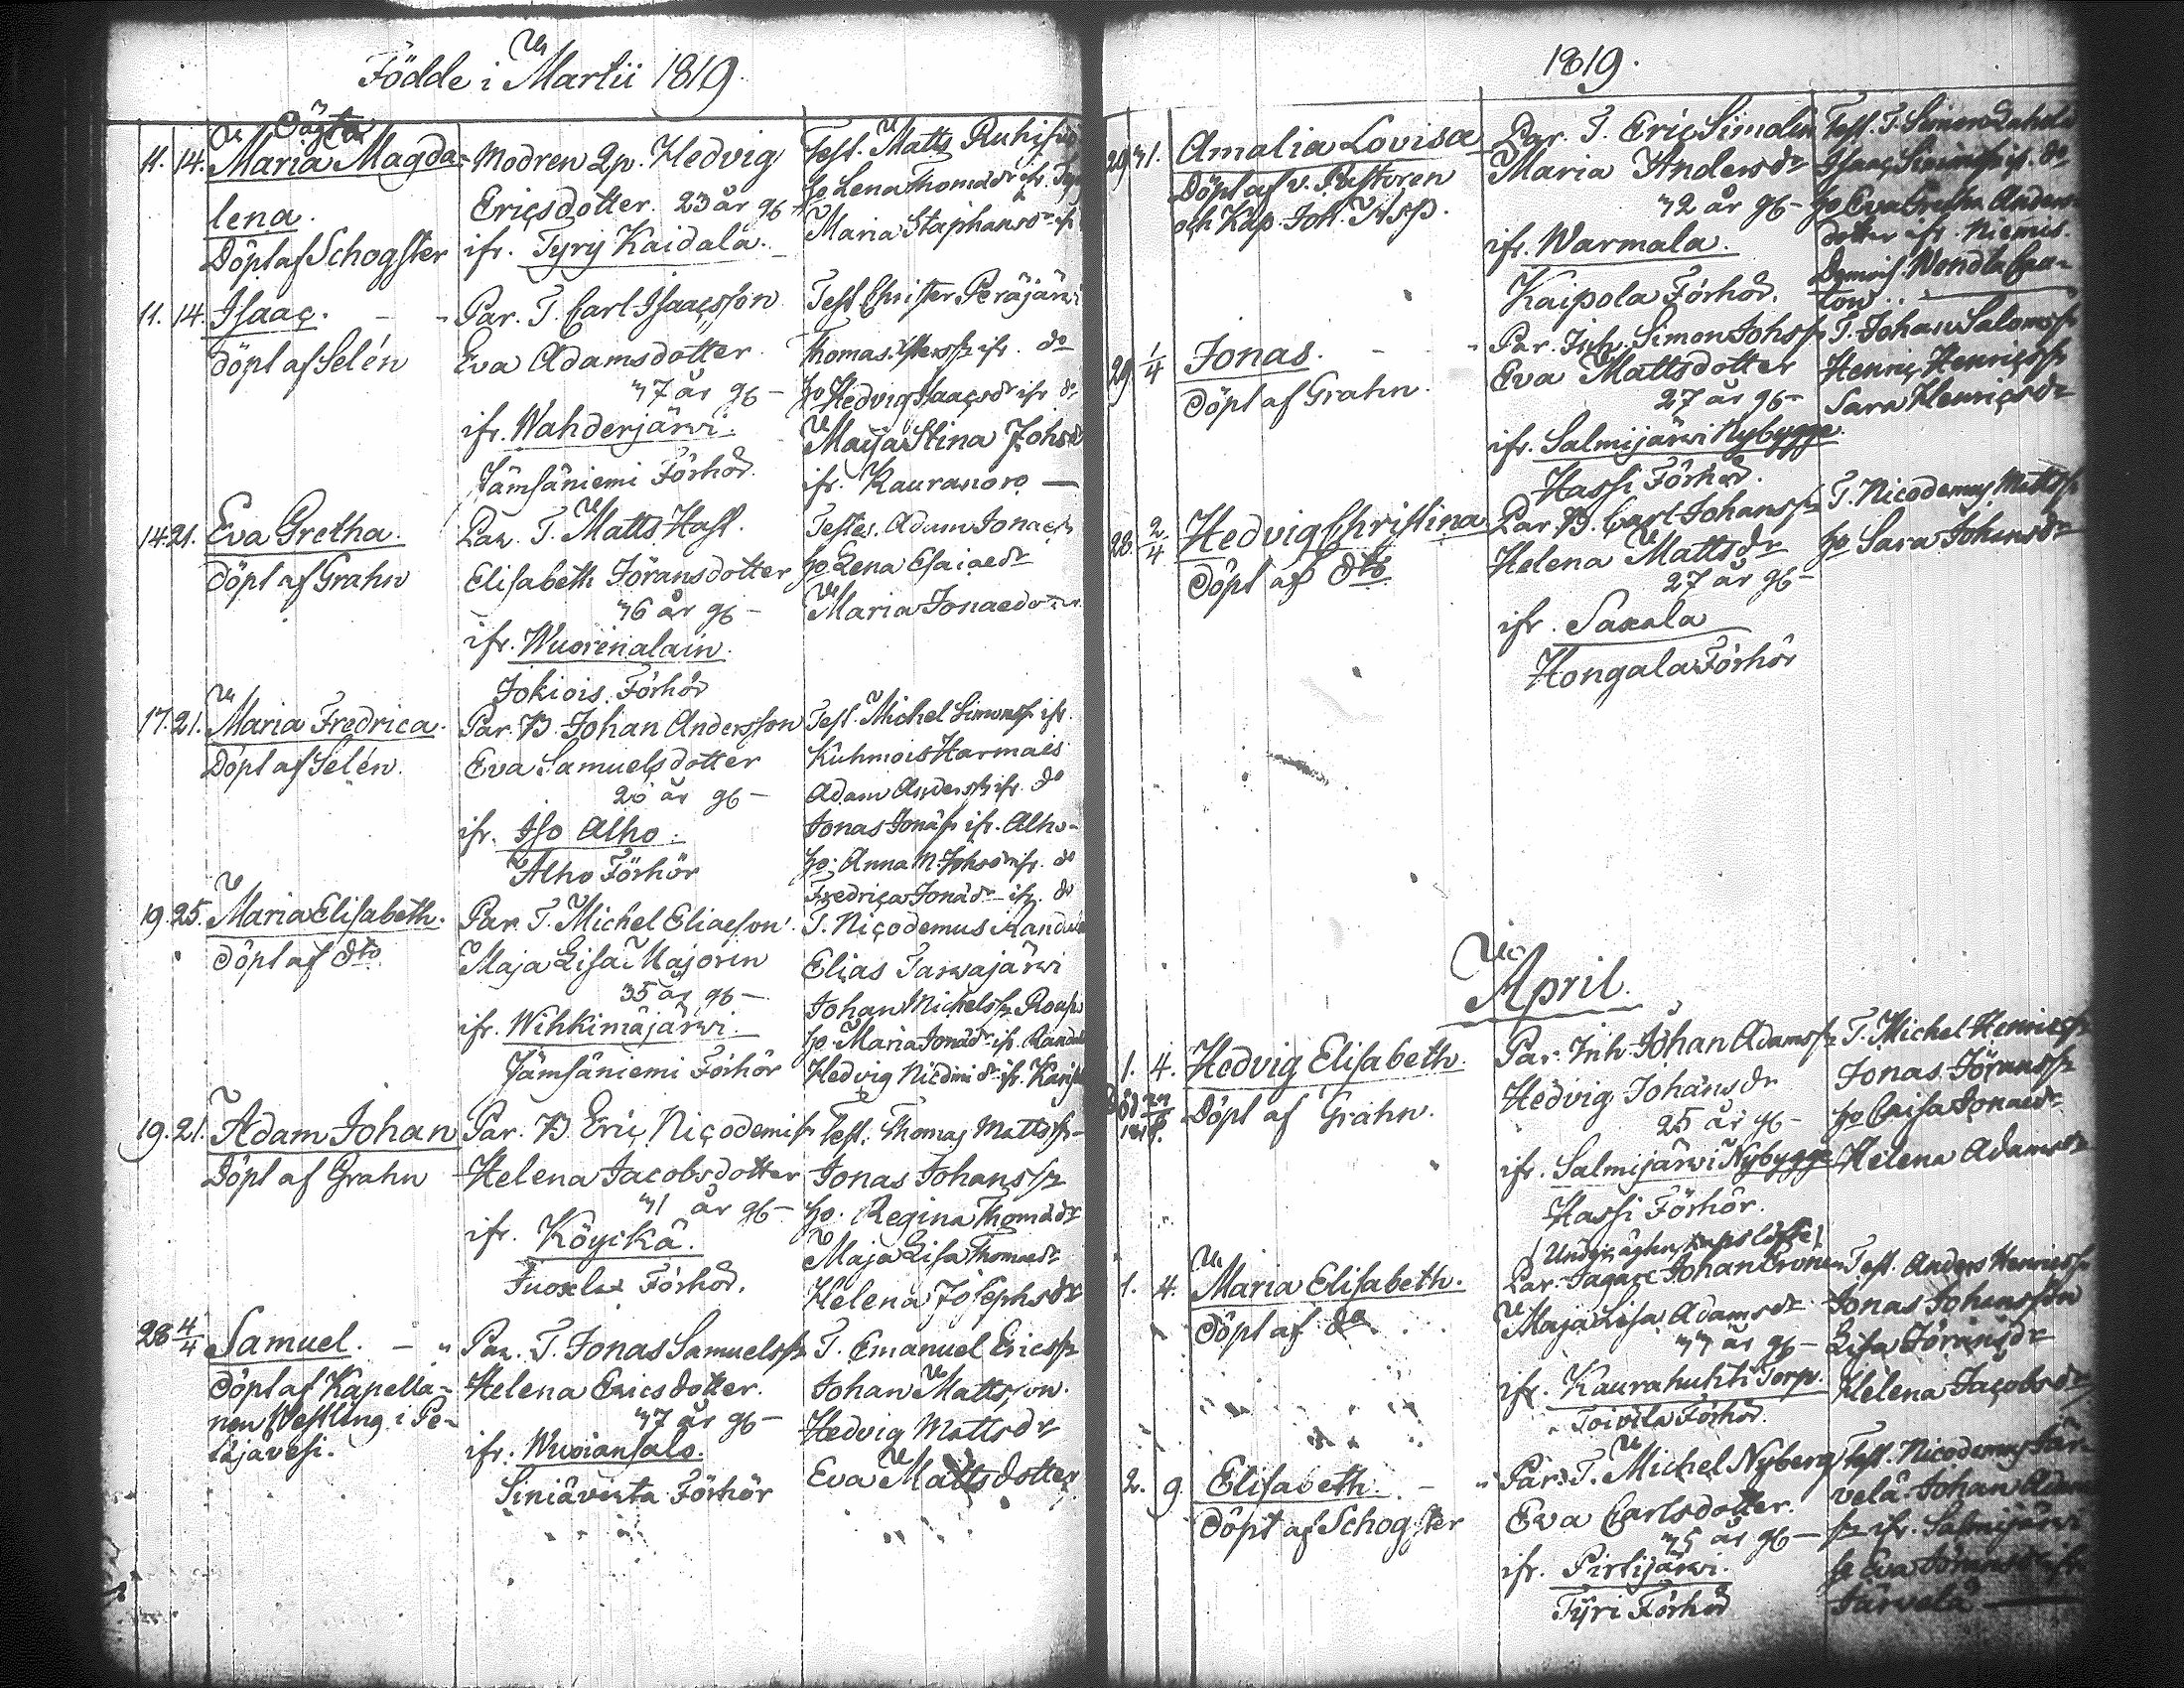 Födde i Martii 1819.
Oägta
11. 14. Maria Magda-
lena.
Döpt af Schogster
Modren Qp. Hedvig
Ericsdotter 23 år g6
ifr. Tyry Kaidala.
Test. Matts
ho Lena Thomædr ifr.
Maria Staphansdr ifr
11. 14. Isaac.
döpt af Selén
Par. T. Carl Isaacsson
Eva Adamsdotter
37 år g6 -
ifr. Wahderjärwi.
Jämsäniemi Förhör.
Test Christer Peräjärwi
Thomas ifr. do
ho Hedvig Isaacsdr ifr do
Maija Stina Johsdr
ifr. Kauranoro
14. 21. Eva Gretha.
döpt af Grahn
Par. T. Matts Hast.
Elisabeth Jöransdotter
36 år g6 -
ifr. Wuorinalain.
Jokiois Förhör
Testes. Adam Jonæs
ho Lena Esaiædr
Maria Jonaedotter
17. 21. Maria Fredrica.
Döpt af Selén.
Par. B. Johan Andersson
Eva Samuelsdotter
26 år g6 -
ifr. Iso Alho.
Alho Förhör
Test. Michel Simonss ifr.
Kuhmois Harmais
Adam Anderss ifr. do
Jonas Jonäss ifr. Alho-
ho. Anna M. Johsdr ifr. do
Fredrica Jonädr ifr. do
19. 25. Maria Elisabeth.
döpt af dto
Par. T. Michel Eliaeson
Maja Lisa Majorin
35 år g6 -
ifr. Wihkimäjärwi.
Jämsäniemi Förhör
T. Nicodemus
Elias Tarwajärwi
Johan Michelss
ho. Maria Jonädr ifr.
Hedvig Nicdmi dr ifr.
19. 21. Adam Johan
Döpt af Grahn
Par. B Eric Nicodemiss
Helena Jacobsdotter
31 år g6 -
ifr. Köyckä.
Juoxla Förhör.
Test. Thomas Mattss -
Jonas Johanss
ho. Regina Thomädr
Maja Lisa Thomædr
Helena Josephsdr
28 4/4 Samuel.
Döpt af Kapella-
nen Westling i Pe-
täjävesi.
Par. T. Jonas Samuelss
Helena Ericsdotter.
37 år g6 -
ifr. Wuoiansalo.
Siniävirta Förhör
T. Emanuel Ericss
Johan Mattsson.
Hedvig Mattsdr
Eva Mattsdotter
1819.
29 31. Amalia Lovisa
Döpt af v. Pastoren
och Kap. Joh.
Par. T. Eric Simolin
Maria Andersdr
32 år g6 -
ifr. Warmala.
Kaipola Förhör.
Test. T. Simon
Isaac ifr. do
ho Eva Gretha Anders-
dotter ifr. Niemis.
29 1/4 Jonas.
döpt af Grahn.
Par. Inh. Simon Johss
Eva Mattsdotter
27 år g6 -
ifr. Salmijärwi Nybygge
Hassi Förhör.
T. Johan Salomss
Henric Henricss
Sara Henricsdr
28. 2/4 Hedvig Christina
döpt af dto
Par. B. Carl Johanss
Helena Mattsdr
27 år g6 -
ifr. Saxala
Hongala Förhör
T. Nicodemus Mattss
ho Sara Johansdr
April.
1. 4. Hedvig Elisabeth.
Döpt af Grahn.
Par. Inh. Johan Adamss
Hedvig Johansdr
25 år g6 -
ifr. Salmijärwi Nybygge
Hassi Förhör.
T. Michel Henricss
Jonas Jöranss
ho Caisa Jonædr
Helena Adamsdr
1. 4. Maria Elisabeth.
döpt af do
Par. Johan
Maja Lisa Adamsdr
33 år g6 -
ifr. Kaurahuhti Torp.
Toivila Förhör.
Test. Anders Henricss
Jonas Johansson
Lisa Jöransdr
Helena Jacobsdr
2. 9 Elisabeth.
Döpt af Schogster
Par. T. Michel Nyberg
Eva Carlsdotter.
35 år g6 -
ifr. Pirtijärwi.
Tyri Förhör
Test. Nicodemus Jär-
velä. Johan
ifr. Salmijärwi
Järvelä